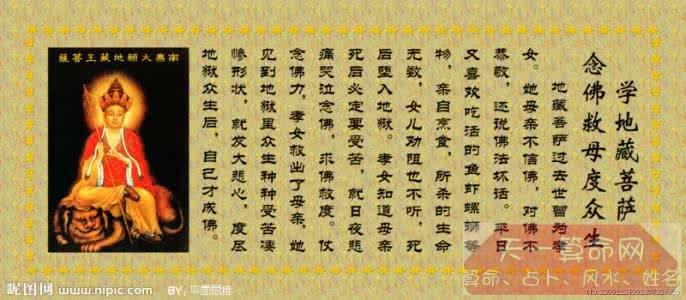 学地藏菩萨
念佛救母度众生
地藏菩萨过去世曾为孝
女。她母亲不信佛，对佛不
恭敬，还说佛法坏话。平日
又喜欢吃活的鱼虾螺蛳等
物，亲自烹食，所杀的生命
无数，女儿劝阻也不听，死
后堕入地狱。孝女知道母亲
死后必定要受苦，就日夜悲
痛哭泣念佛，求佛救度。仗
念佛力，孝女救出了母亲，她
见到地狱里众生种种受苦凄
惨形状，就发大悲心，度尽
地狱众生后，自己才成佛。
南無大願地藏王菩薩
天一算命网
算命、占卜、风水、姓名
昵图网 www.nipic.com BY：平面思维